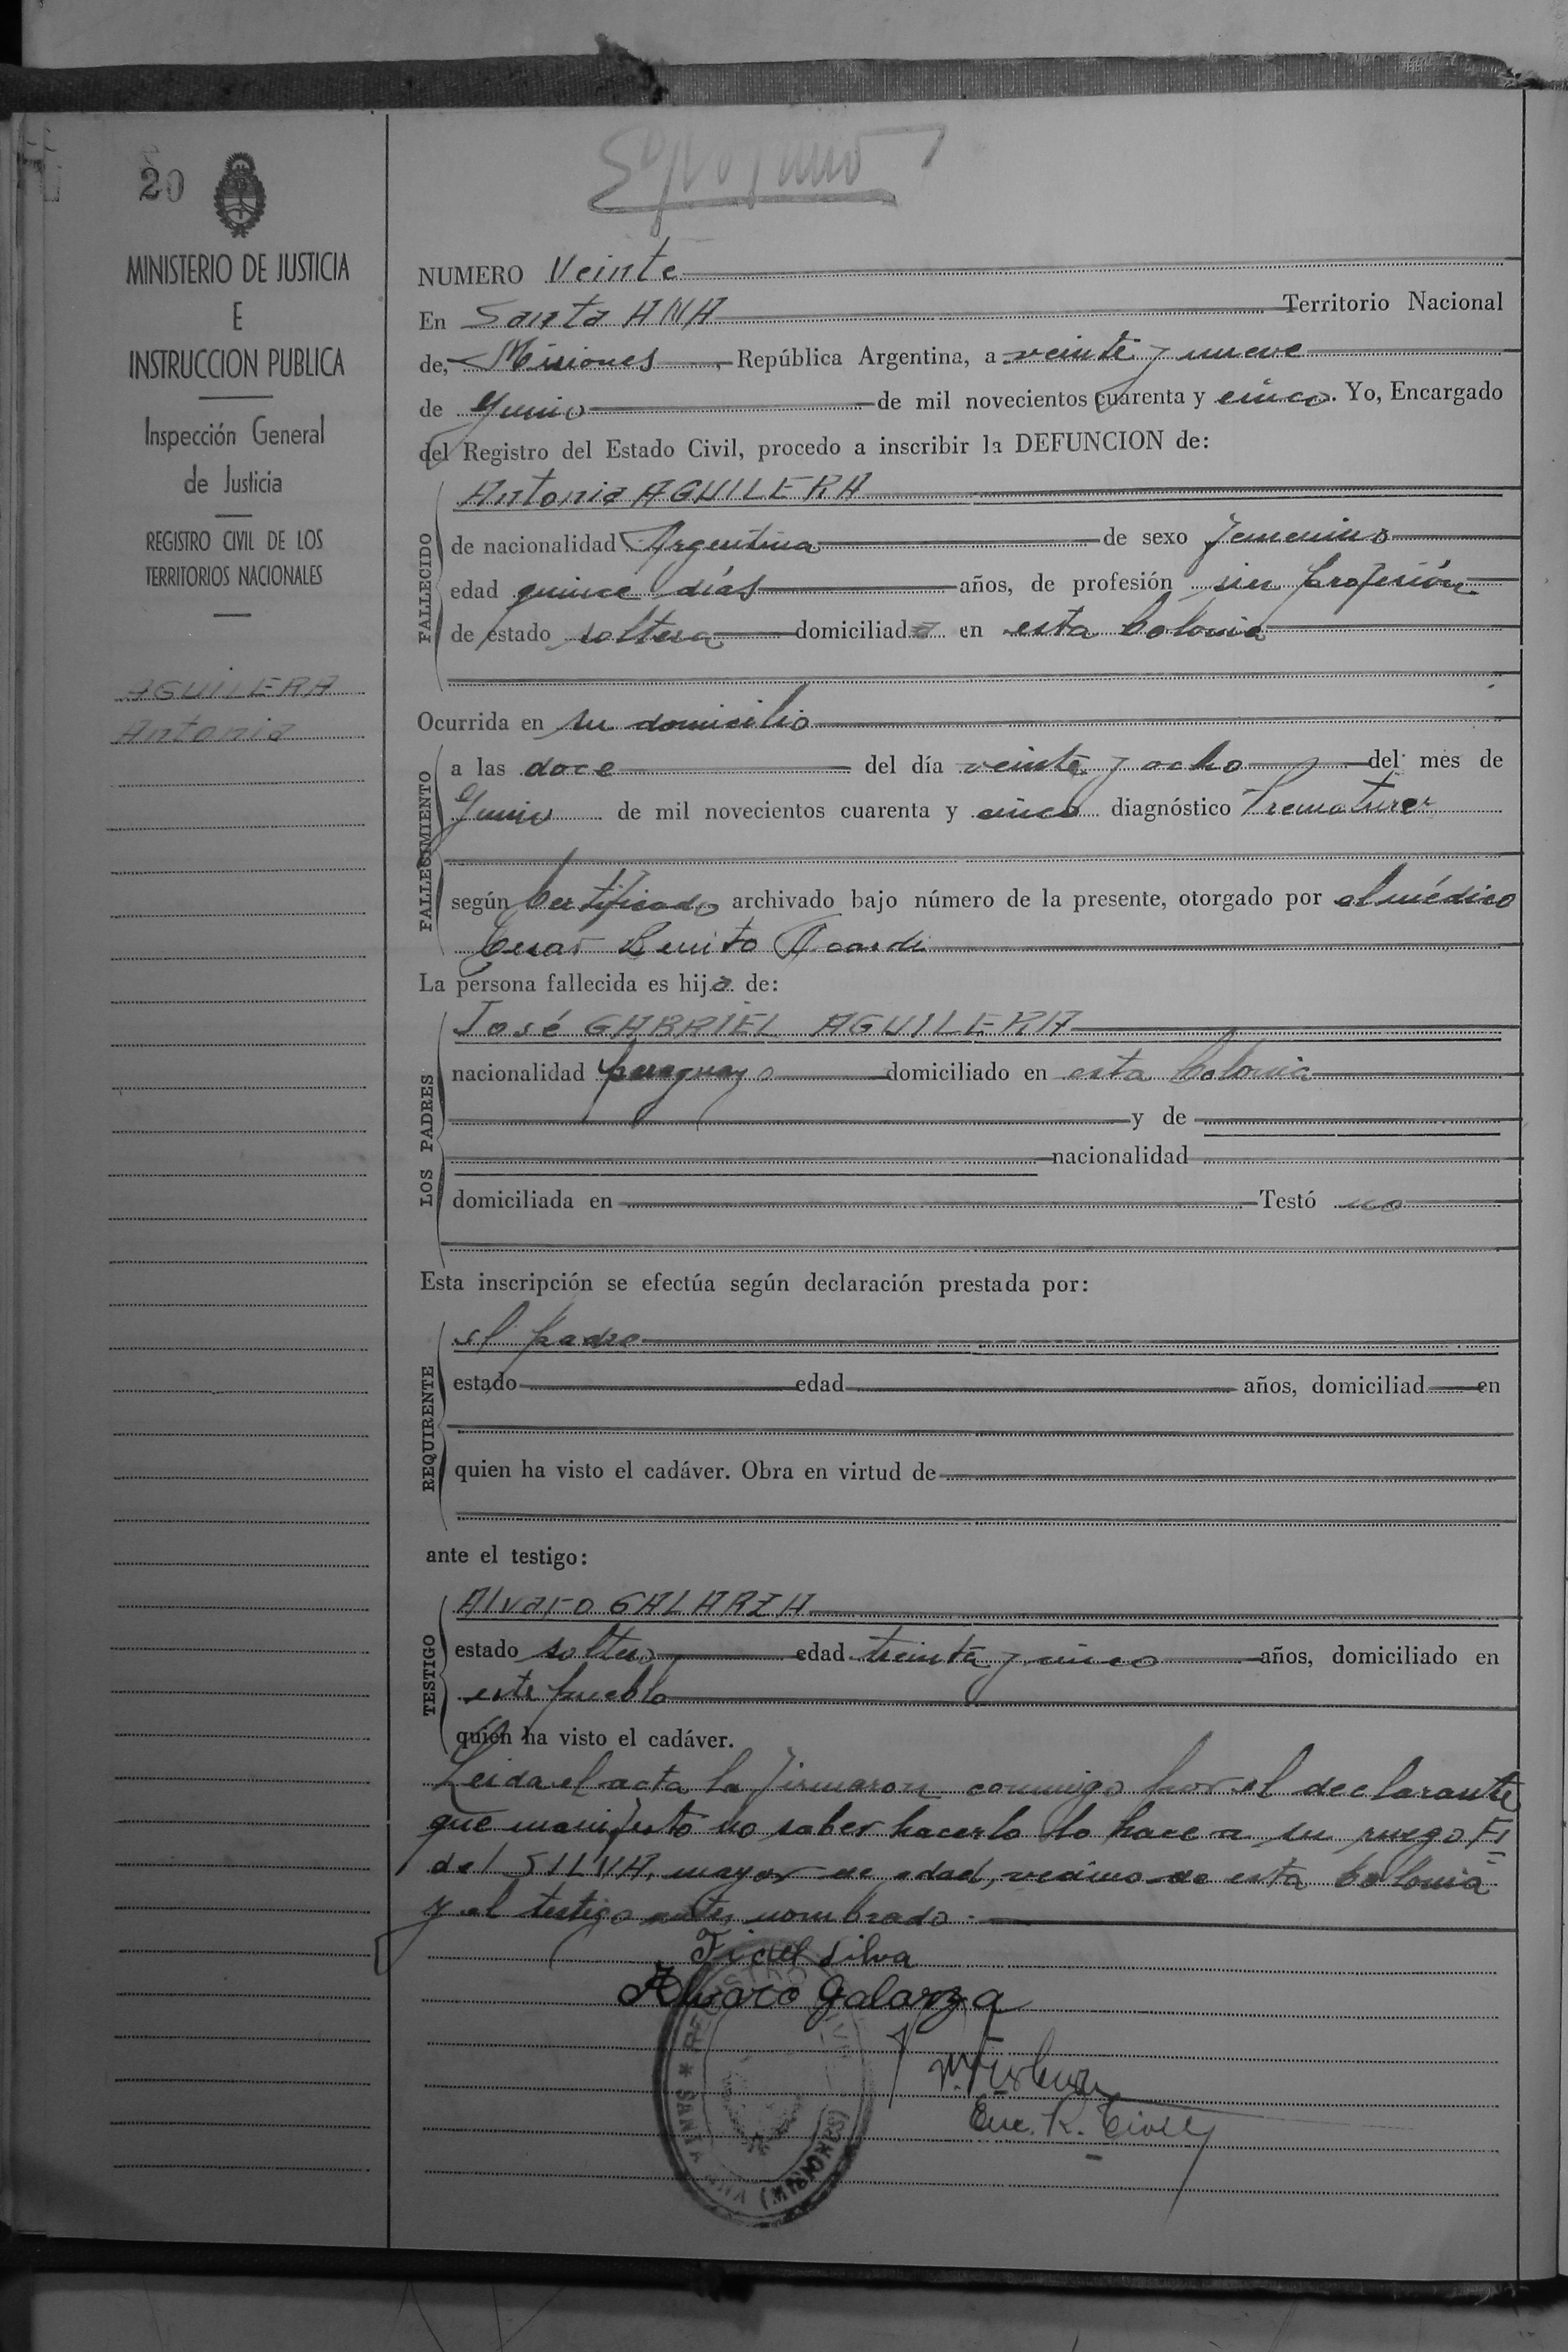 20
MINISTERIO DE JUSTICIA
E
INSTRUCCION PUBLICA
Inspección General
de Justicia
REGISTRO CIVIL DE LOS
TERRITORIOS NACIONALES
AGUILERA
Antonia
NUMERO Veinte
En Santa ANA Territorio Nacional
de, Misiones, República Argentina, a veinte y nueve
de Junio de mil novecientos cuarenta y cinco. Yo, Encargado
del Registro del Estado Civil, procedo a inscribir la DEFUNCION de:
FALLECIDO
Antonia AGUILERA
de nacionalidad Argentina de sexo femenino
edad quince días años, de profesión sin profesión
de estado soltera domiciliada en esta Colonia
Ocurrida en su domicilio
FALLECIMIENTO
a las doce del día veinte y ocho del mes de
Junio de mil novecientos cuarenta y cinco diagnóstico Prematurez
según Certificado archivado bajo número de la presente, otorgado por el médico
Cesar Benito
La persona fallecida es hija de:
LOS PADRES
José GABRIEL AGUILERA
nacionalidad paraguayo domiciliado en esta Colonia
y de
nacionalidad
domiciliada en Testó no
Esta inscripción se efectúa según declaración prestada por:
REQUIRENTE
el padre
estado edad años, domiciliad en
quien ha visto el cadáver. Obra en virtud de
ante el testigo:
TESTIGO
Alvaro GALARZA
estado soltero edad treinta y cinco años, domiciliado en
este pueblo
quién ha visto el cadáver.
Leida el acta la firmaron conmigo por el declarante
que manifestó no saber hacerlo lo hace a su ruego Fi
del SILVA, mayor de edad, vecino de esta Colonia
y el testigo antes nombrado.
Fidel Silva
Alvaro Galarza
Enc. R. Civil
REGISTRO CIVIL * SANTA ANA (MISIONES)